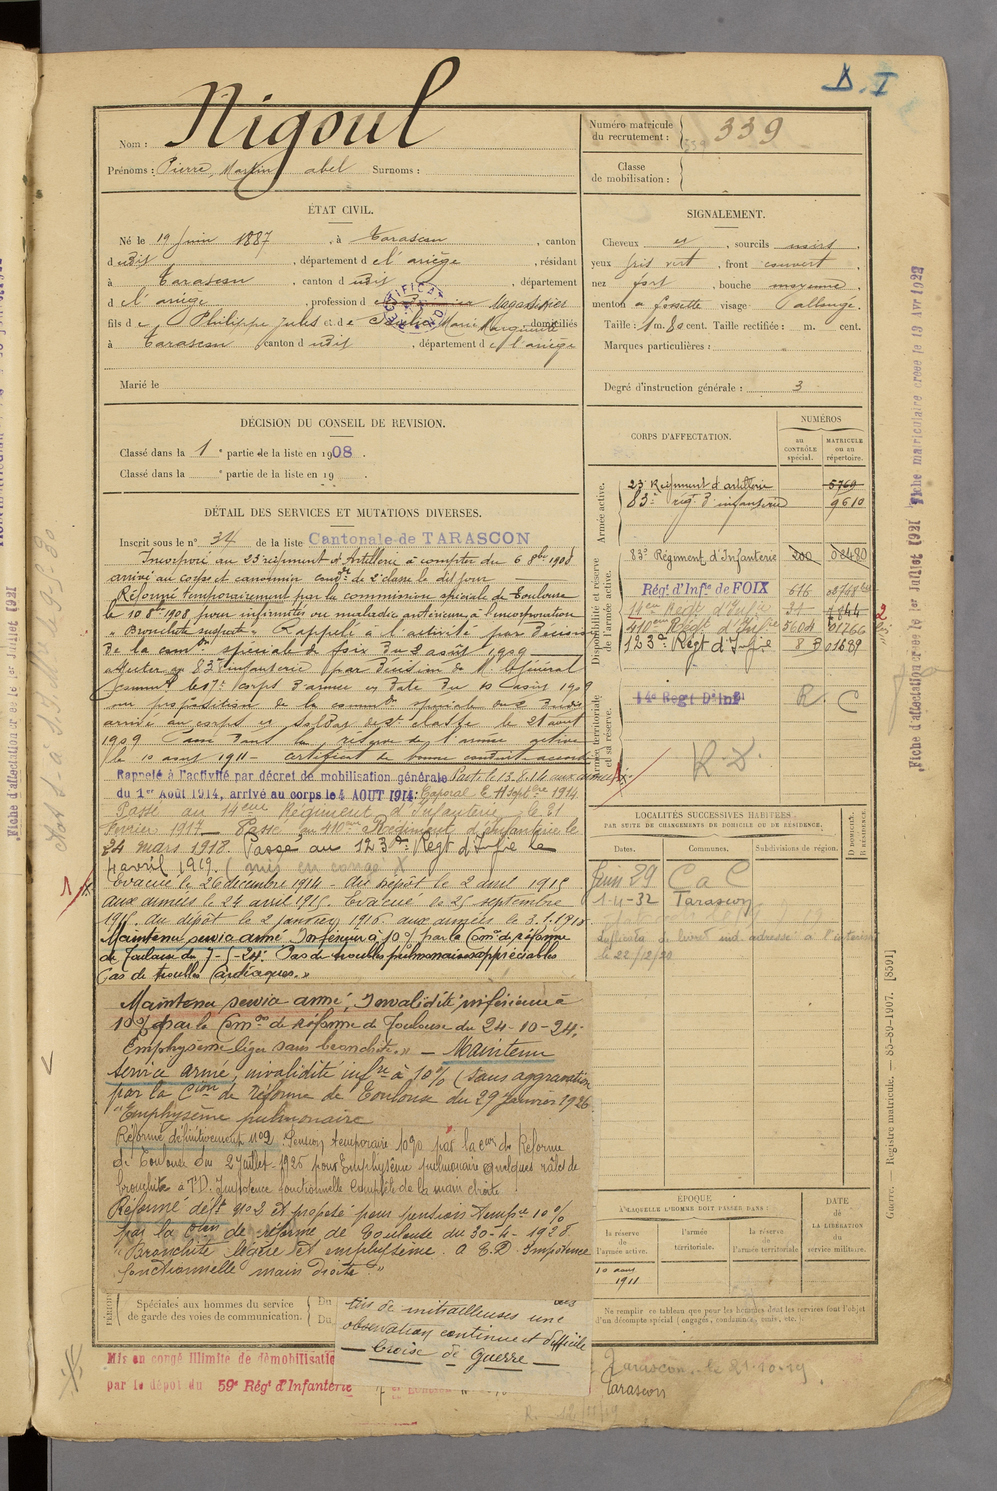 D. I
Nigoul
Nom :
Prénoms : Pierre, Martin abel Surnoms :
Numéro matricule du recrutement : 339
Classe de mobilisation :
ÉTAT CIVIL.
Né le 19 Juin 1887, à Tarascon, canton
d udit, département d e l'ariège, résidant
à Tarascon, canton d udit, département
d e l'ariège, profession d Magasinier
fils d e Philippe Jules et d e Marie Marguerite domiciliés
à Tarascon canton d udit, département d e l'ariège
Marié le
SIGNALEMENT.
Cheveux et, sourcils noirs.
yeux gris vert, front couvert,
nez fort, bouche moyenne,
menton à fossette visage allongé.
Taille : 1 m. 80 cent. Taille rectifiée : m. cent.
Marques particulières :
Degré d'instruction générale : 3
DÉCISION DU CONSEIL DE REVISION.
Classé dans la 1e partie de la liste en 1908.
Classé dans la e partie de la liste en 19 .
DÉTAIL DES SERVICES ET MUTATIONS DIVERSES.
Inscrit sous le n° 34 de la liste Cantonale de TARASCON
Incorporé au 23e régiment d'Artillerie à compter du 6 8bre 1908
arrivé au corps et canonnier condr de 2e classe le dit jour
Réformé temporairement par la commission spéciale de Toulouse
le 10 8bre 1908 pour infirmités ou maladie antérieure à l'incorporation
" Bronchite suspecte " Rappelé à l'activité par décision
de la comon spéciale de foix du 2 août 1909
affecter au 83e infanterie par décision de M. le Général
Commt le 17e corps d'armée en date du 10 août 1909
sur proposition de la common spéciale
arrivé au corps et soldat de 2e classe le 21 août
1909 Passé dans la réserve de l'armée active
le 10 août 1911 certificat de bonne conduite accordé
Rappelé à l'activité par décret de mobilisation générale Parti le 13.8.14 aux armées
du 1er Août 1914, arrivé au corps le 4 AOUT 1914. Caporal le 11 Septbre 1914
Passé au 14eme Régiment d'Infanterie le 21
Février 1917 Passé au 410eme Régiment d'Infanterie le
24 mars 1918. Passé au 123e Régt d'Infie le
4 avril 1919. (mis en congé X
Evacué le 26 décembre 1914 - Au dépôt le 2 avril 1915
aux armées le 24 avril 1915. Evacué le 25 septembre
1915. Au dépôt le 2 janvier 1916. aux armées le 3.1.1918
Maintenu service armé Inférieur à 10% par la Comon de réforme
de Toulouse du 7-5-24. Pas de troubles pulmonaires appréciables
Pas de troubles cardiaques."
Maintenu service armé, Invalidité inférieure à
10% par la Comon de réforme de Toulouse du 24-10-24.
Emphysème léger sans bronchite." - Maintenu
service armé, invalidité infre à 10% (sans aggravation
par la Cion de réforme de Toulouse du 29 Janvier 1926.
"Emphysème pulmonaire
Réformé définitivement n°2 Pension temporaire 10% par la con de Réforme
de Toulouse du 2 Juillet 1926 pour Emphysème pulmonaire quelques râles de
bronchite à P.D. Impotence fonctionnelle complète de la main droite.
Réformé déft n°2 et proposé pour pension tempre 10%
par la Con de réforme de Toulouse du 30-4-1928.
"Bronchite et emphysème. Impotence
fonctionnelle main droite."
CORPS D'AFFECTATION.
NUMÉROS
au CONTRÔLE spécial.
MATRICULE ou au répertoire.
Armée active.
23e Régiment d'artillerie 5769
83e rég. d'infanterie 9610
Disponibilité et réserve de l'armée active.
83e Régiment d'Infanterie 200 02480
Rég. d'Infie de FOIX 616
14em Regt d'Infie 31 1844
410eme Régt d'Infie 5604 01766
123e Régt d'Infie 01689
Armée territoriale et sa réserve.
14e Regt D'Inf R. C
R. D.
LOCALITÉS SUCCESSIVES HABITÉES
PAR SUITE DE CHANGEMENTS DE DOMICILE OU DE RÉSIDENCE.
Dates. Communes. Subdivisions de région. D DOMICILE. R RÉSIDENCE
Juin 29 C a C
1-4-32 Tarascon
livret ind. adressé à l'intéressé
le 22/12/30
ÉPOQUE
À LAQUELLE L'HOMME DOIT PASSER DANS :
la réserve de l'armée active.
l'armée territoriale.
la réserve de l'armée territoriale
DATE de LA LIBÉRATION du service militaire.
10 août 1911
Ne remplir ce tableau que pour les hommes dont les services font l'objet
d'un décompte spécial (engagés, condamnés, omis, etc.).
Spéciales aux hommes du service
de garde des voies de communication.
Du
Du
tirs de mitrailleuses une
observation continue et difficile
— Croix de Guerre —
Mis en congé illimité de démobilisatio
par le dépôt du 59e Régt d'Infanterie
Tarascon, le 21-10-19
Tarascon
R. 12/11/19
Guerre. — Registre matricule. — 85-89-1907. [8591]
Fiche matriculaire créée le 19 Avr 1922
Fiche d'affectation créée le 1er Juillet 1921
Fiche d'affectation créée le 1er Juillet 1921